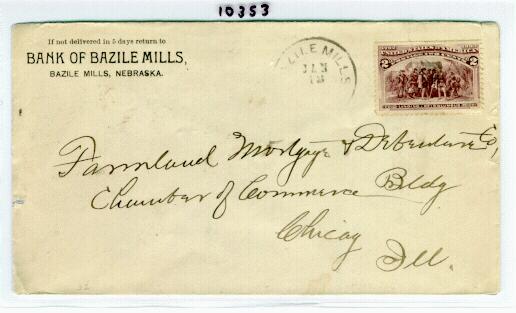 10353
If not delivered in 5 days return to
BANK OF BAZILE MILLS,
BAZILE MILLS, NEBRASKA.
ZILE MILLS
UNITED STATES OF AMERICA
2 2
LANDING OF COLUMBUS
Farmland Mortgage & Debenture Co,
Chamber of Commerce Bldg
Chicag
Ill.